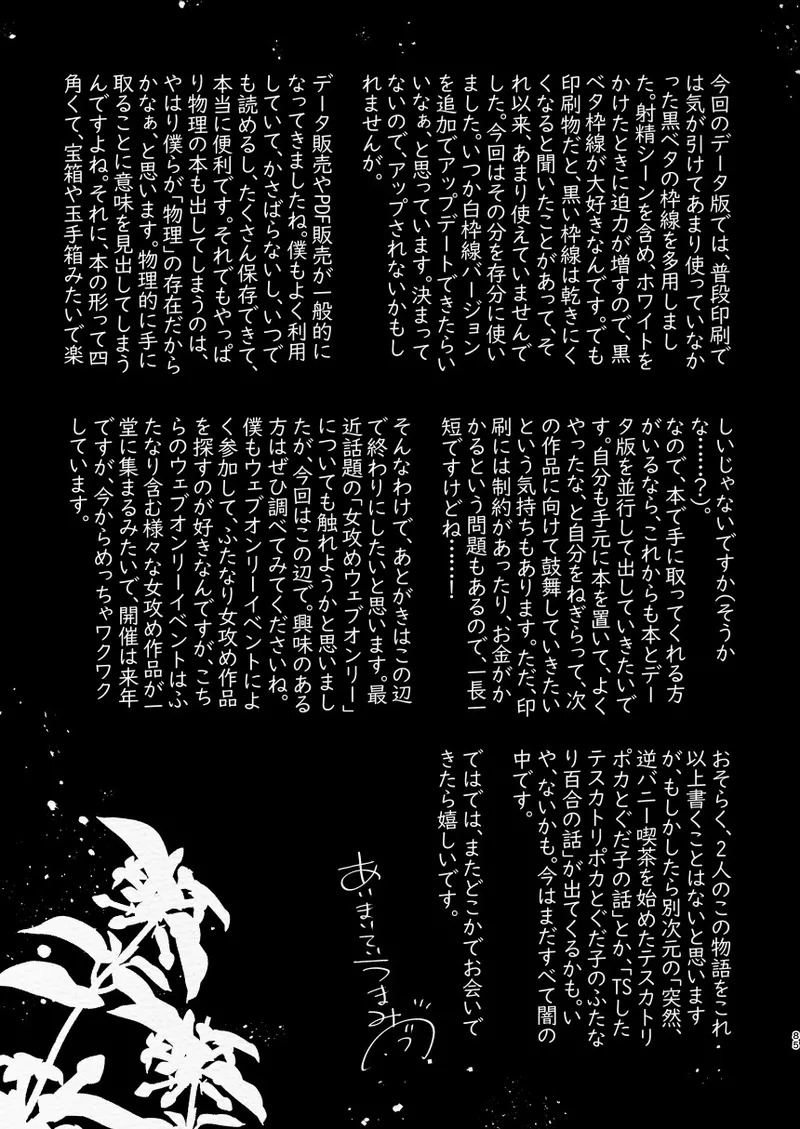 今回のデータ版では、普段印刷で
は気が引けてあまり使っていなか
った黒ベタの枠線を多用しまし
た。射精シーンを含め、ホワイトを
かけたときに迫力が増すので、黒
ベタ枠線が大好きなんです。でも
印刷物だと、黒い枠線は乾きにく
くなると聞いたことがあって、そ
れ以来、あまり使えていませんで
した。今回はその分を存分に使い
ました。いつか白枠線バージョン
を追加でアップデートできたらい
いなぁ、と思っています。決まって
ないので、アップされないかもし
れませんが。
データ販売やPDF販売が一般的に
なってきましたね。僕もよく利用
していて、かさばらないし、いつで
も読めるし、たくさん保存できて、
本当に便利です。それでもやっぱ
り物理の本も出してしまうのは、
やはり僕らが「物理」の存在だから
かなぁ、と思います。物理的に手に
取ることに意味を見出してしまう
んですよね。それに、本の形って四
角くて、宝箱や玉手箱みたいで楽
しいじゃないですか（そうか
な……？）。
なので、本で手に取ってくれる方
がいるなら、これからも本とデー
タ版を並行して出していきたいで
す。自分も手元に本を置いて、よく
やったな、と自分をねぎらって、次
の作品に向けて鼓舞していきたい
という気持ちもあります。ただ、印
刷には制約があったり、お金がか
かるという問題もあるので、一長一
短ですけどね……！
そんなわけで、あとがきはこの辺
で終わりにしたいと思います。最
近話題の「女攻めウェブオンリー」
についても触れようかと思いまし
たが、今回はこの辺で。興味のある
方はぜひ調べてみてくださいね。
僕もウェブオンリーイベントによ
く参加して、ふたなり女攻め作品
を探すのが好きなんですが、こち
らのウェブオンリーイベントはふ
たなり含む様々な女攻め作品が一
堂に集まるみたいで、開催は来年
ですが、今からめっちゃワクワク
しています。
おそらく、2人のこの物語をこれ
以上書くことはないと思います
が、もしかしたら別次元の「突然、
逆バニー喫茶を始めたテスカトリ
ポカとぐだ子の話」とか、「TSした
テスカトリポカとぐだ子のふたな
り百合の話」が出てくるかも。い
や、ないかも。今はまだすべて闇の
中です。
ではでは、またどこかでお会いで
きたら嬉しいです。
あいまいでぃうまみ
85